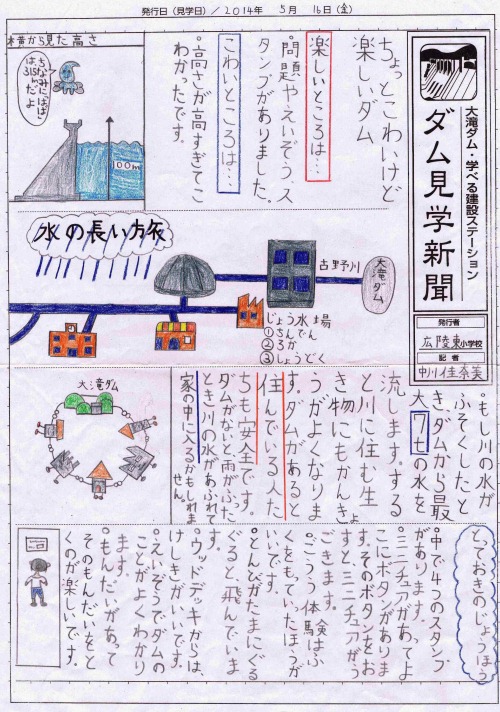 発行日（見学日）／2014年 5月 16日（金）
大滝ダム・学べる建設ステーション
ダム見学新聞
発行者
広陵東小学校
記者
中川佳奈美
ちょっとこわいけど
楽しいダム
楽しいところは…
・問題やえいぞう、ス
タンプがありました。
こわいところは…
・高さが高すぎてこ
わかったです。
横から見た高さ
ちなみに、はば
は、315mだよ
100m
水の長い旅
大滝ダム
吉野川
じょう水場
①ちんでん
②ろか
③しょうどく
・もし川の水が
ふそくしたと
き、ダムから最
大7tの水を
流します。する
と川に住む生
き物にもかんきょ
うがよくなりま
す。ダムがあると
住んでいる人た
ちも安全です。
ダムがないと、雨がふった
とき川の水があふれて
家の中に入るかもしれま
せん。
大滝ダム
とっておきのじょうほう
・中で4つのスタンプ
があります。
・ミニチュアがあってよ
こにボタンがありま
す。そのボタンをお
すと、ミニチュアがう
ごきます。
・ごうう体験はふ
くをもっていたほうが
いいです。
・とんびがたまにぐる
ぐると、飛んでいま
す。
・ウッドデッキからは、
けしきがいいです。
・えいぞうでダムの
ことがよくわかり
ます。
・もんだいがあって
そのもんだいをと
くのが楽しいです。